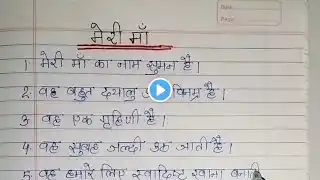 मेरी माँ
1. मेरी माँ का नाम सुमन है।
2. वह बहुत दयालु विनम्र है।
3. वह एक गृहिणी है।
4. वह सुबह जल्दी उठ जाती है।
5. वह हमारे लिए स्वादिष्ट खाना बनाती